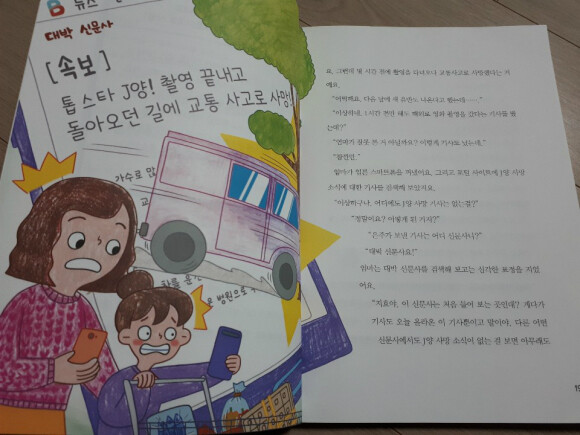 B 뉴스
대박 신문사
[속보]
톱 스타 J양! 촬영 끝내고
돌아오던 길에 교통 사고로 사망!
가수로 많
교
병원으로
요. 그런데 몇 시간 전에 촬영을 다녀오다 교통사고로 사망했다는 거
예요.
"어떡해요. 다음 달에 새 음반도 나온다고 했는데……."
"이상하네. 1시간 전만 해도 해외로 영화 촬영을 갔다는 기사를 봤
는데?"
"엄마가 잘못 본 거 아닐까요? 이렇게 기사도 있는데."
"잠깐만."
엄마가 얼른 스마트폰을 꺼냈어요. 그리고 포털 사이트에 J양 사망
소식에 대한 기사를 검색해 보았지요.
"이상하구나. 어디에도 J양 사망 기사는 없는걸?"
"정말이요? 어떻게 된 거지?"
"은주가 보낸 기사는 어디 신문사니?"
"대박 신문사요!"
엄마는 대박 신문사를 검색해 보고는 심각한 표정을 지었
어요.
"지효야, 이 신문사는 처음 들어 보는 곳인데? 게다가
기사도 오늘 올라온 이 기사뿐이고 말이야. 다른 어떤
신문사에서도 J양 사망 소식이 없는 걸 보면 아무래도